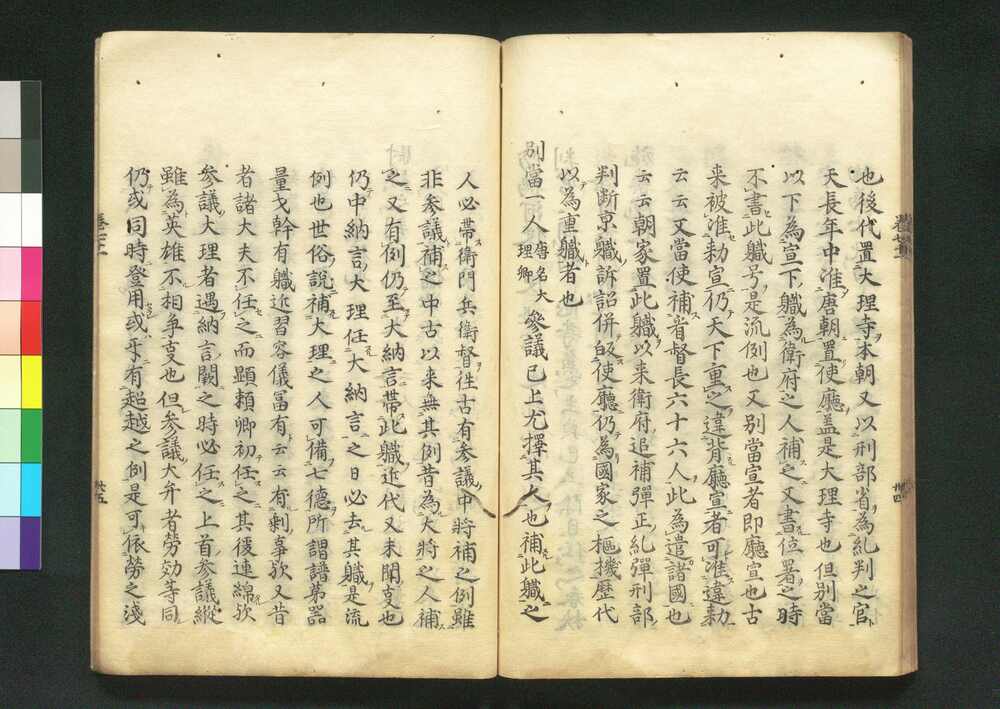 也後代置大理寺本朝又以刑部省為糺判之官
天長年中准唐朝置使廳盖是大理寺也但別當
以下為宣下職為衛府之人補之又書位署之時
不書此職号是流例也又別當宣者即廳宣也古
来被准勅宣仍天下重之違背廳宣者可准違勅
云云又當使補看督長六十六人此為遣諸國也
云云朝家置此職以来衛府追補彈正糺彈刑部
判断京職訴詔併皈使廳仍為國家之樞機歷代
以為重職者也
別當一人唐名大理卿參議已上尤擇其人也補此職之
人必帶衛門兵衛督徃古有参議中將補之例雖
非參議補之中古以来無其例昔為大將之人補
之又有例仍至大納言帶此職近代又未聞叓也
仍中納言大理任大納言之日必去其職是流
例也世俗説補大理之人可備七德所謂譜第器
量才幹有職近習容儀冨有云云有剰事欤又昔
者諸大夫不任之而顕頼卿初任之其後連綿欤
參議大理者遇納言闕之時必任之上首參議縱
雖為英雄不相争叓也但參議大弁者勞効等同
仍或同時登用或乎有超越之例是可依勞之淺
卅四
卅五